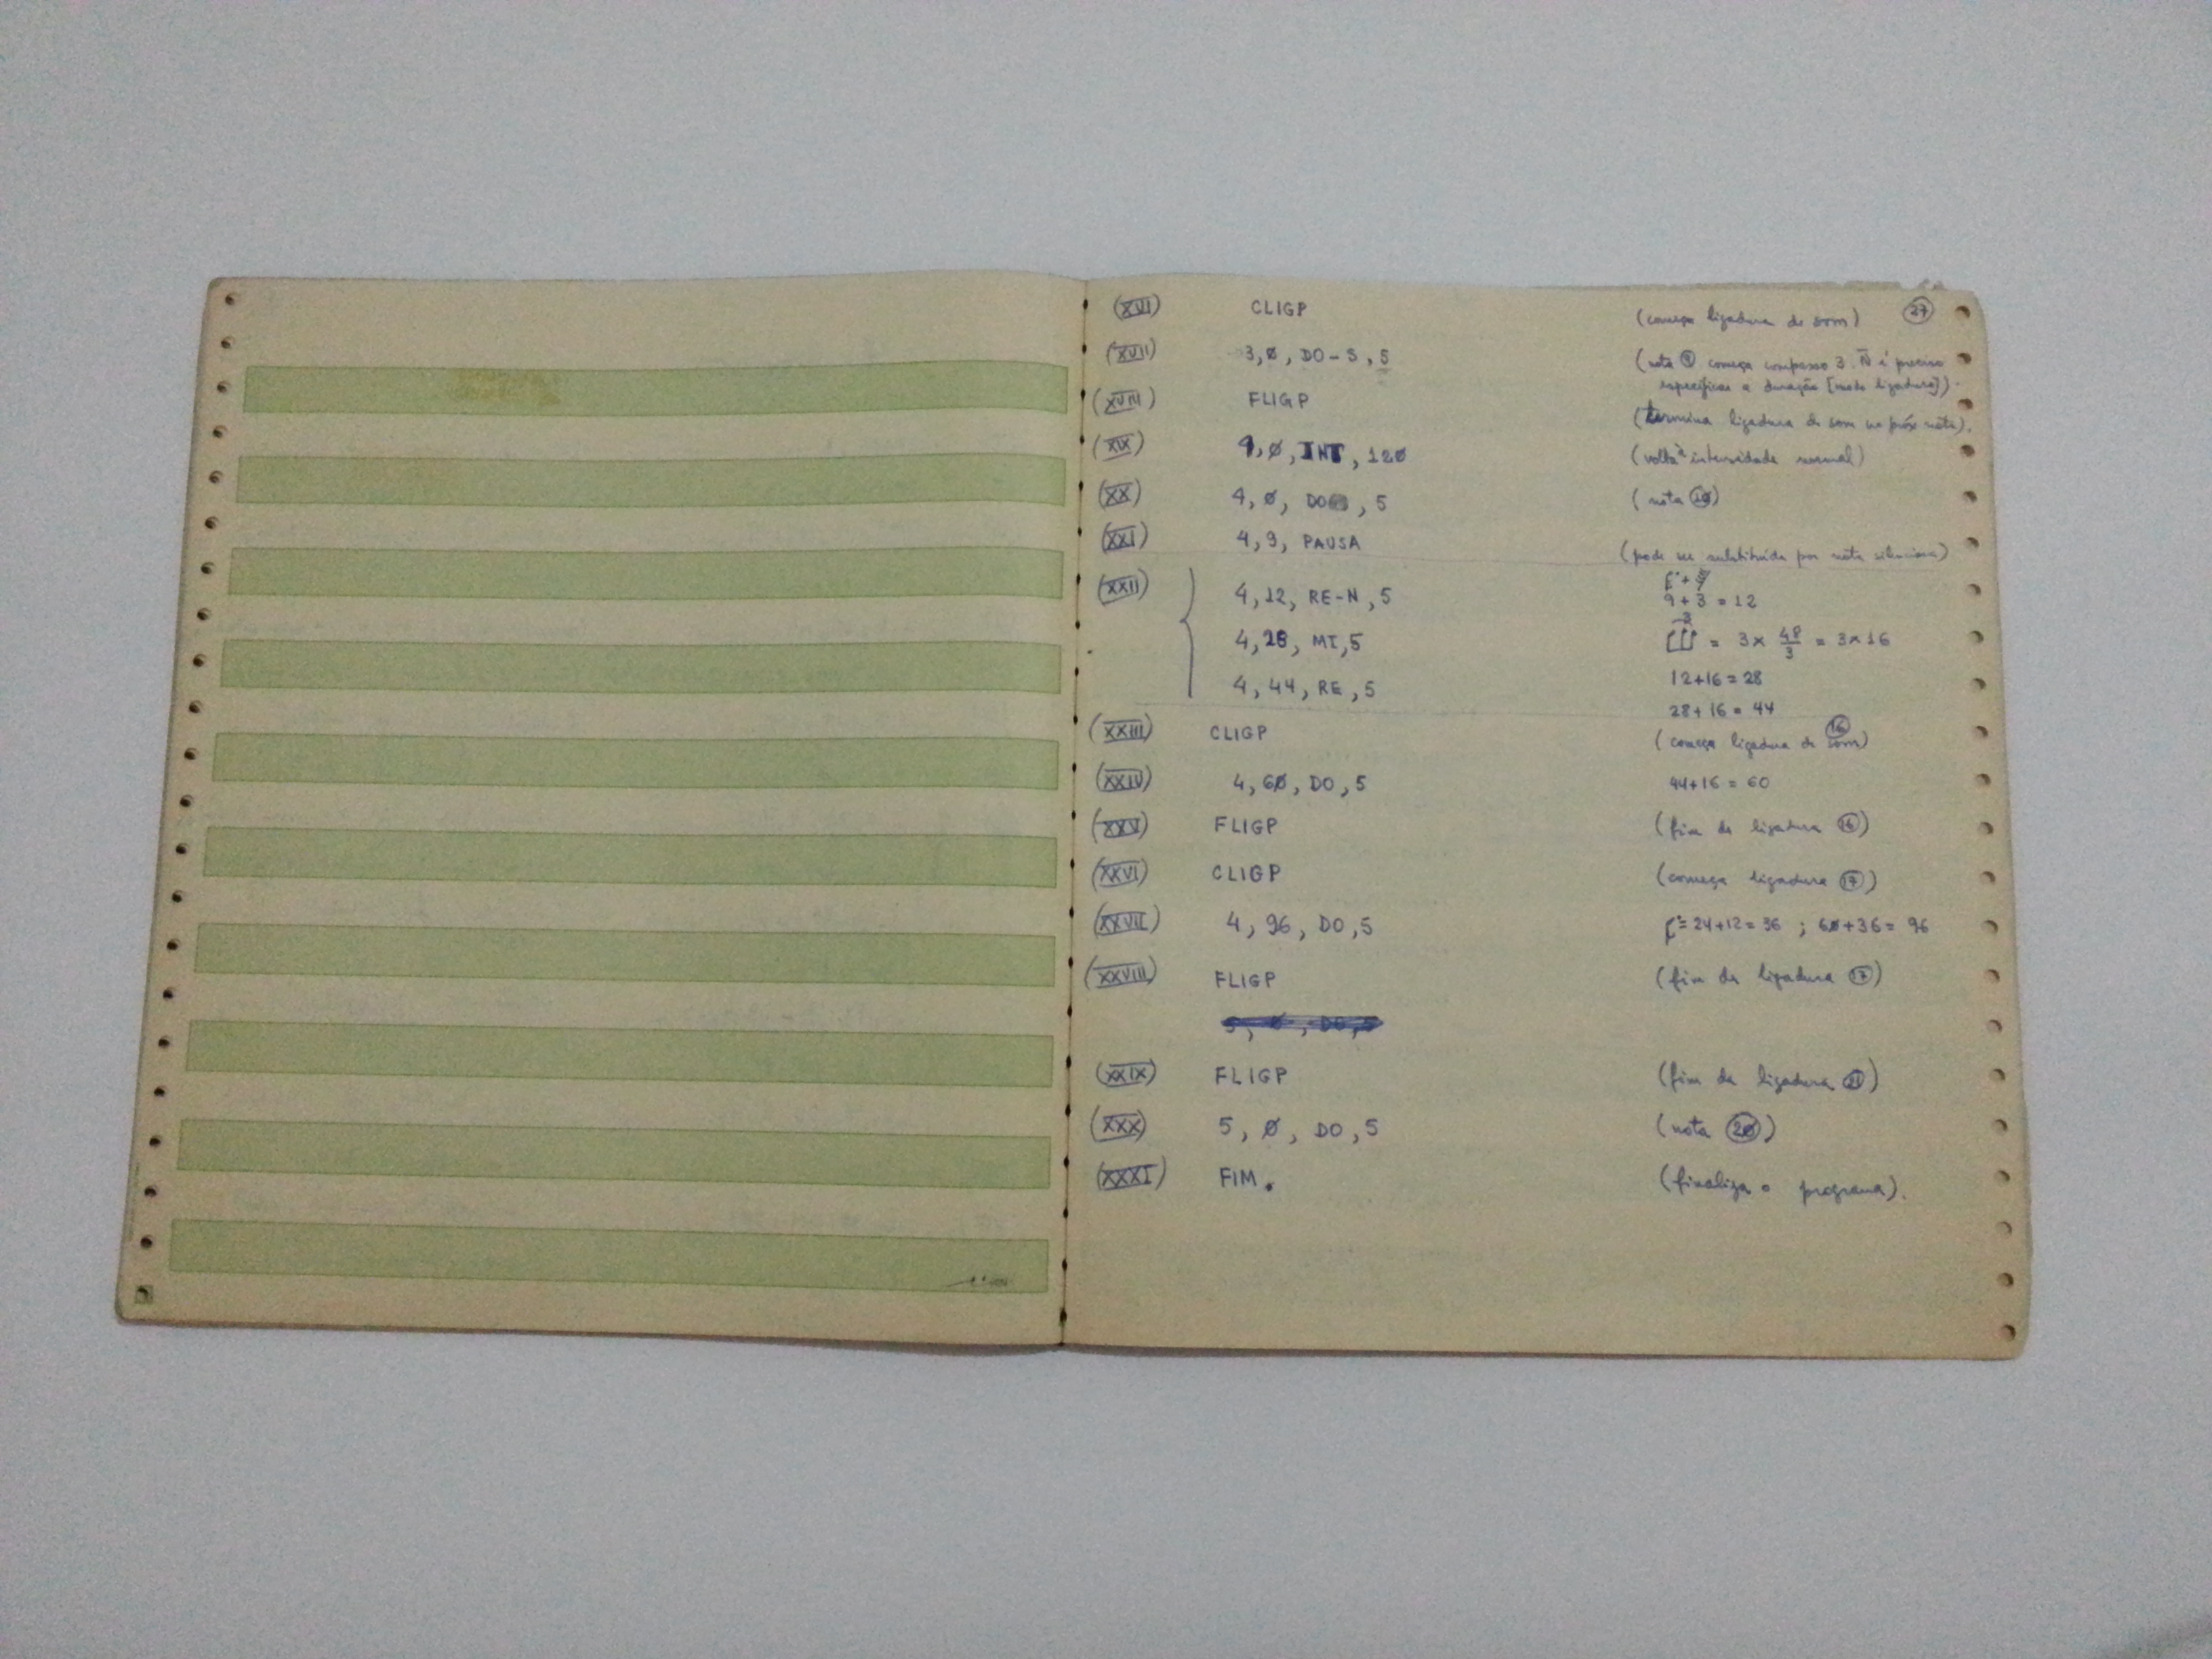 27
(XVI) CLIGP (começa ligadura de som)
(XVII) 3,Ø, DO-S, 5 (nota começa compasso 3. Ñ é preciso
especificar a duração [nesta ligadura]).
(XVIII) FLIGP (termina ligadura de som na próx. nota).
(XIX) 4,Ø, INT, 12Ø (volta à intensidade normal)
(XX) 4,Ø, DO, 5 (nota)
(XXI) 4,9, PAUSA (pode ser substituída por nota silenciosa)
(XXII) 4,12, RE-N, 5 9+3=12
4,28, MI, 5 = 3 x 48/3 = 3x16
12+16=28
4,44, RE, 5 28+16=44
(XXIII) CLIGP (começa ligadura de som 16)
(XXIV) 4,6Ø, DO, 5 44+16=60
(XXV) FLIGP (fim de ligadura 16)
(XXVI) CLIGP (começa ligadura 17)
(XXVII) 4,96, DO, 5 =24+12=36 ; 6Ø+36=96
(XXVIII) FLIGP (fim de ligadura 17)
(XXIX) FLIGP (fim de ligadura)
(XXX) 5, Ø, DO, 5 (nota 20)
(XXXI) FIM. (finaliza o programa).